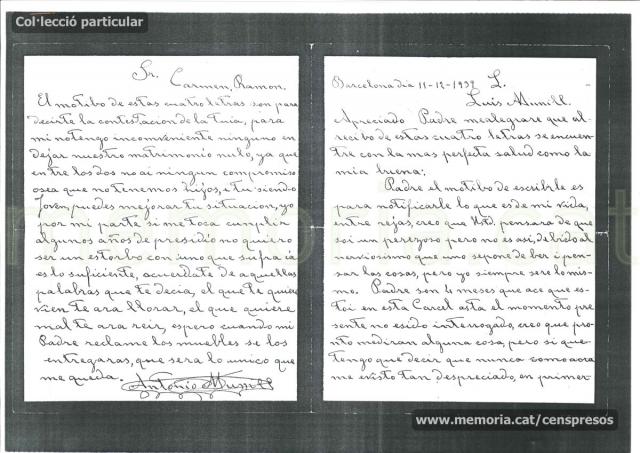 Col·lecció particular
Sr.
Carmen, Ramon.
El motibo de estas cuatro letras son para
decirte la contestacion de la tuia, para
mi no tengo inconveniente ninguno en
dejar nuestro matrimonio nulo, ya que
entre los dos no ai ningun compromiso
osea que no tenemos hijos, e tu siendo
Joven, puedes mejorar tu situacion, yo
por mi parte si me toca cumplir
algunos años de presidio no quiero
ser un estorbo con uno que sufra ia
es lo suficiente, acuerdate de aquellas
palabras que te decia, el que te quiere
vien te ara llorar, el que quiere
mal te ara reir, espero cuando mi
Padre reclame los muebles se los
entregaras, que sera lo unico que
me queda. Antonio
Barcelona dia 11-12-1939 L.
Luis
Apreciado Padre me alegrare que al
recibo de estas cuatro letras se encuen
tre con la mas perfecta salud como la
mia buena;
Padre el motibo de escribirle es
para notificarle lo que es de mi vida,
entre rejas, creo que Vtd. pensara de que
soi un perezoso pero no es asi, debido al
narviosismo que uno sepone de ber i pen
sar las cosas, pero yo siempre sere lo mis
mo. Padre son 4 meses que ace que es
toi en esta Carcel asta el momento pre
sente no e sido interrogado, creo que pron
to me diran alguna cosa, pero si que
tengo que decir que nunca como aora
me e visto tan despreciado, en primer
www.memoria.cat/censpresos